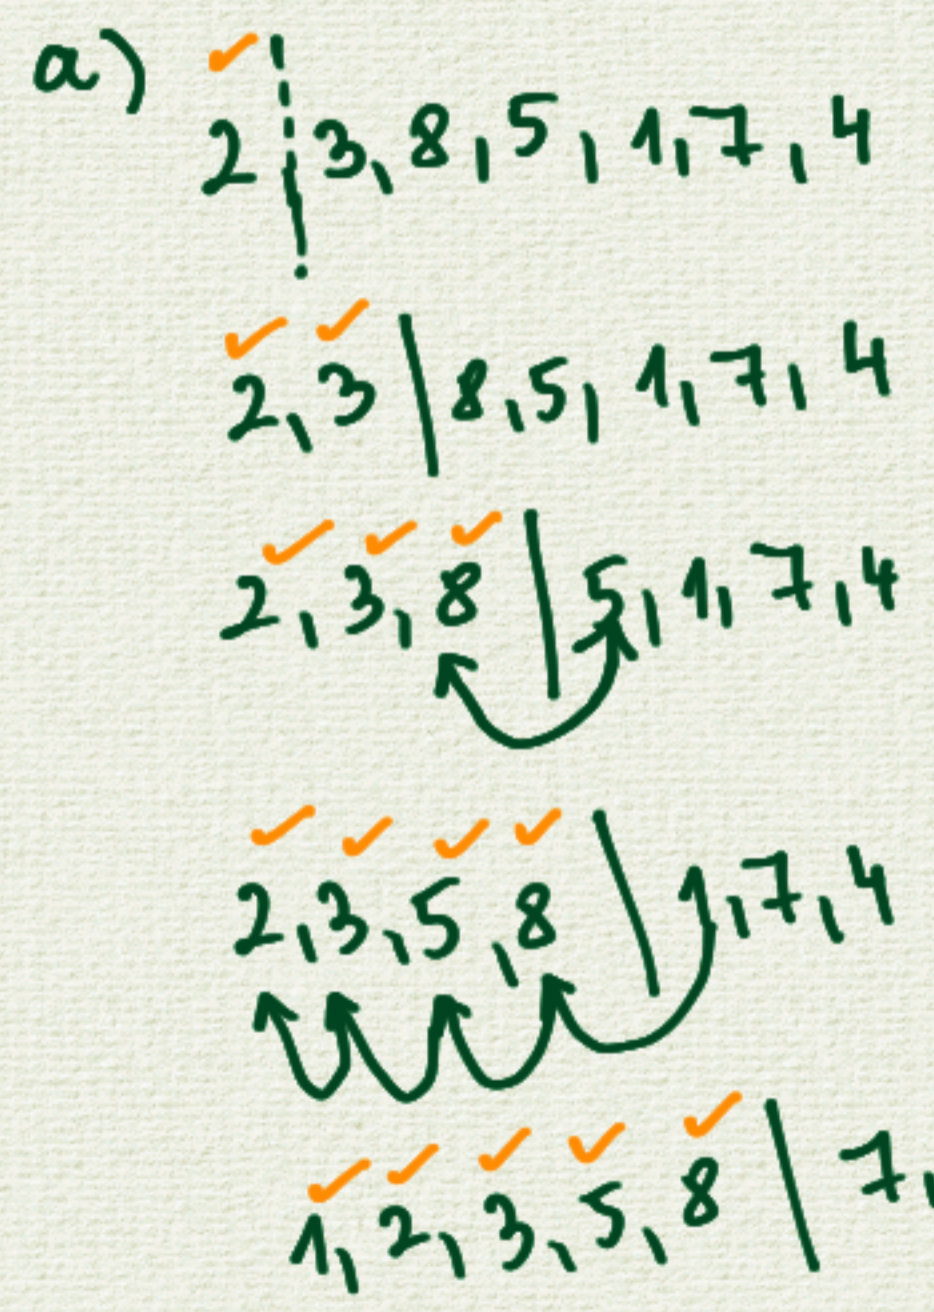 a)
2 | 3, 8, 5, 1, 7, 4
2, 3 | 8, 5, 1, 7, 4
2, 3, 8 | 5, 1, 7, 4
2, 3, 5, 8 | 1, 7, 4
1, 2, 3, 5, 8 | 7,